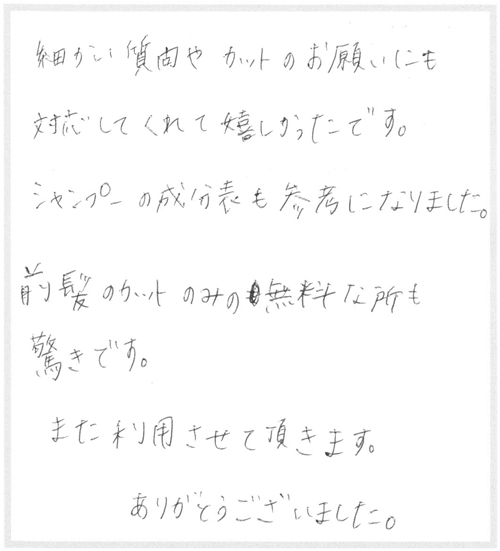 細かい質問や カットのお願いにも
対応してくれて嬉しかったです。
シャンプーの成分表も参考になりました。
前髪のカットのみの無料な所も
驚きです。
また利用させて頂きます。
ありがとうございました。